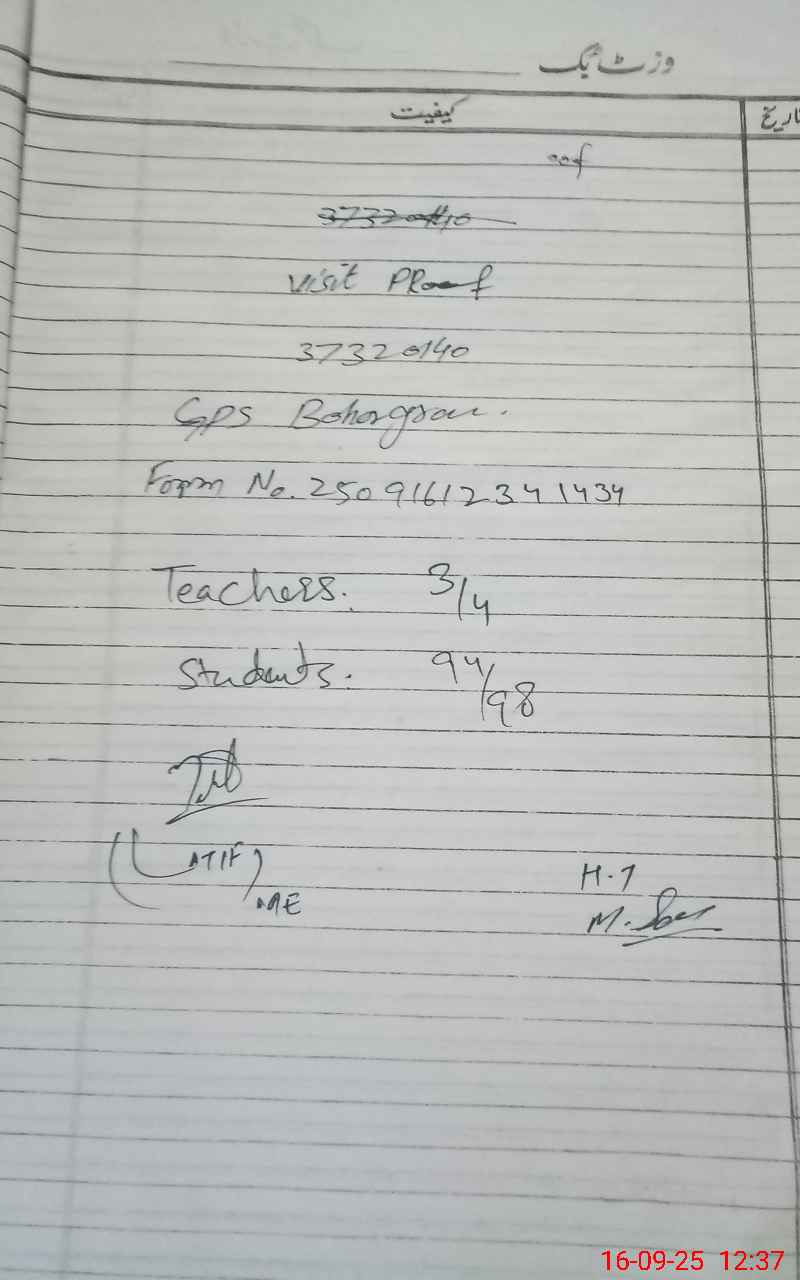 وزٹ بک
کیفیت
تاریخ
oof
37320140
Visit PRoof
37320140
GPS Bohargran.
Form No. 25091612341434
Teachers. 3/4
Students. 94/98
(LATIF)
ME
H.T
M.
16-09-25 12:37